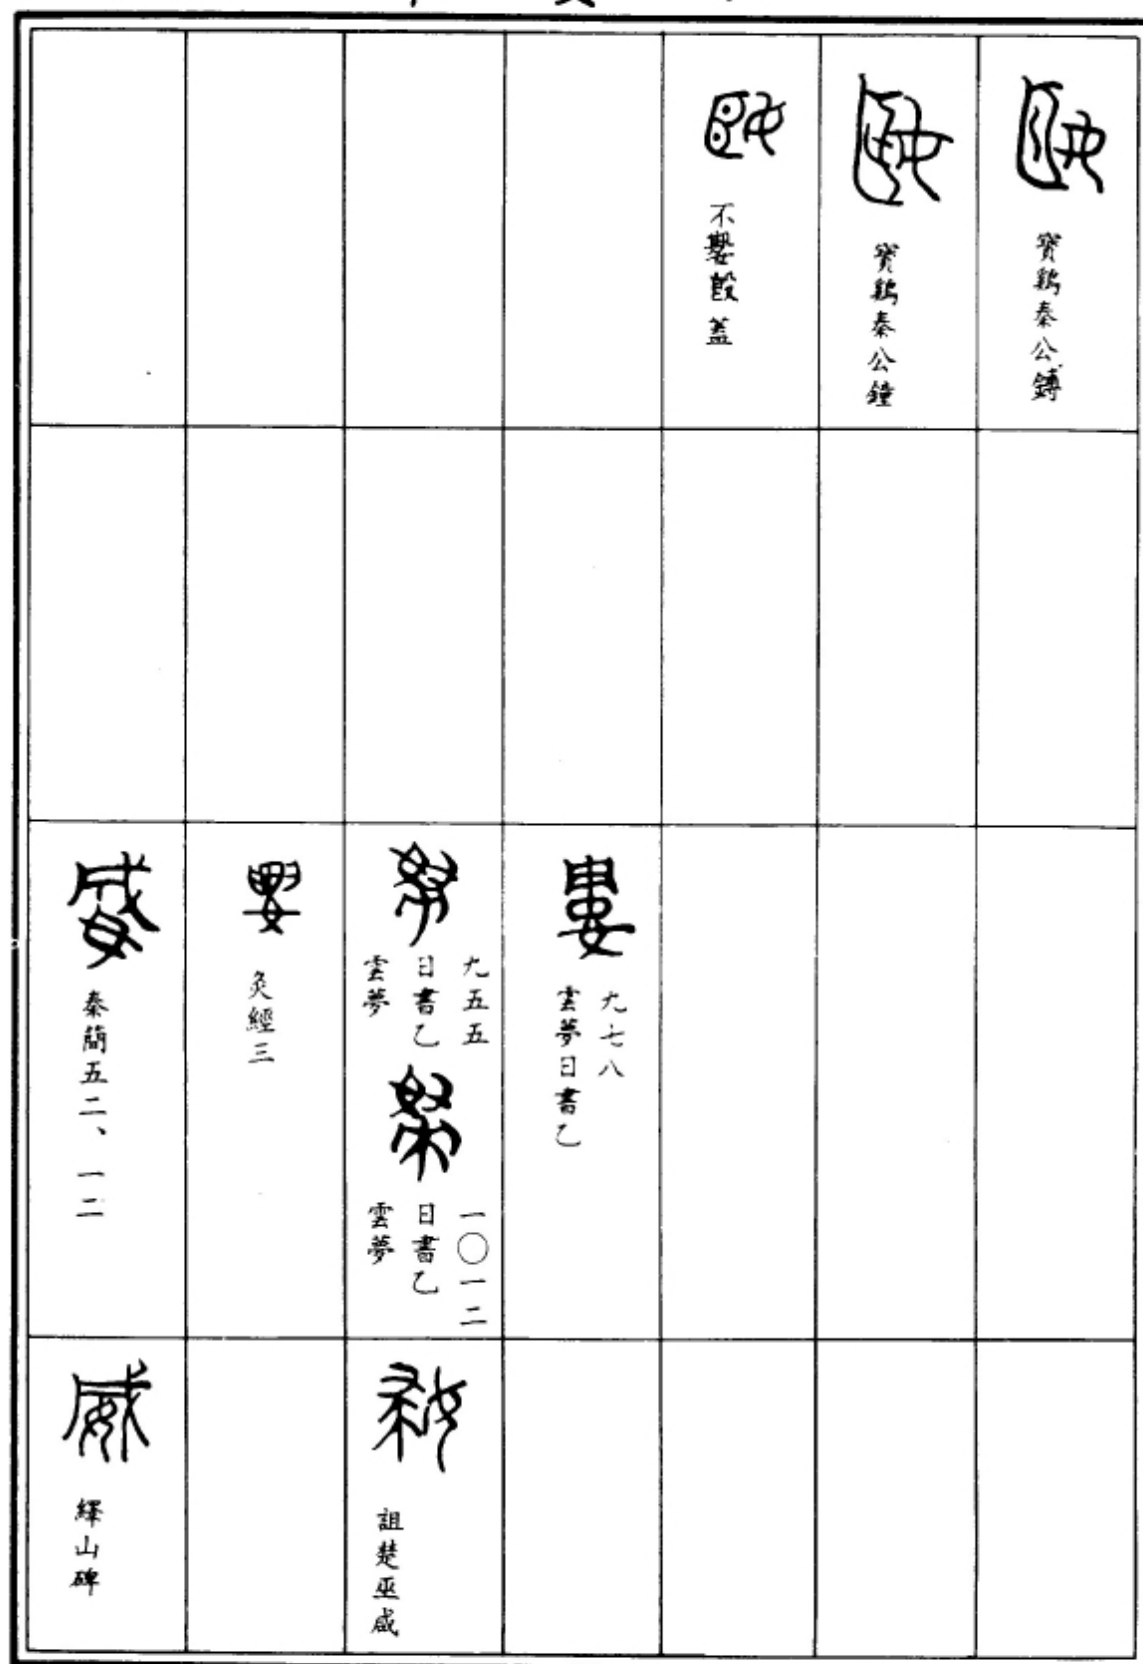 寶鷄秦公鎛
寶鷄秦公鐘
不𡢁𣪘蓋
婁
九七八
雲夢日書乙
九五五
日書乙
雲夢
一〇一二
日書乙
雲夢
灸經三
秦簡五二、一二
詛楚巫咸
威
繹山碑